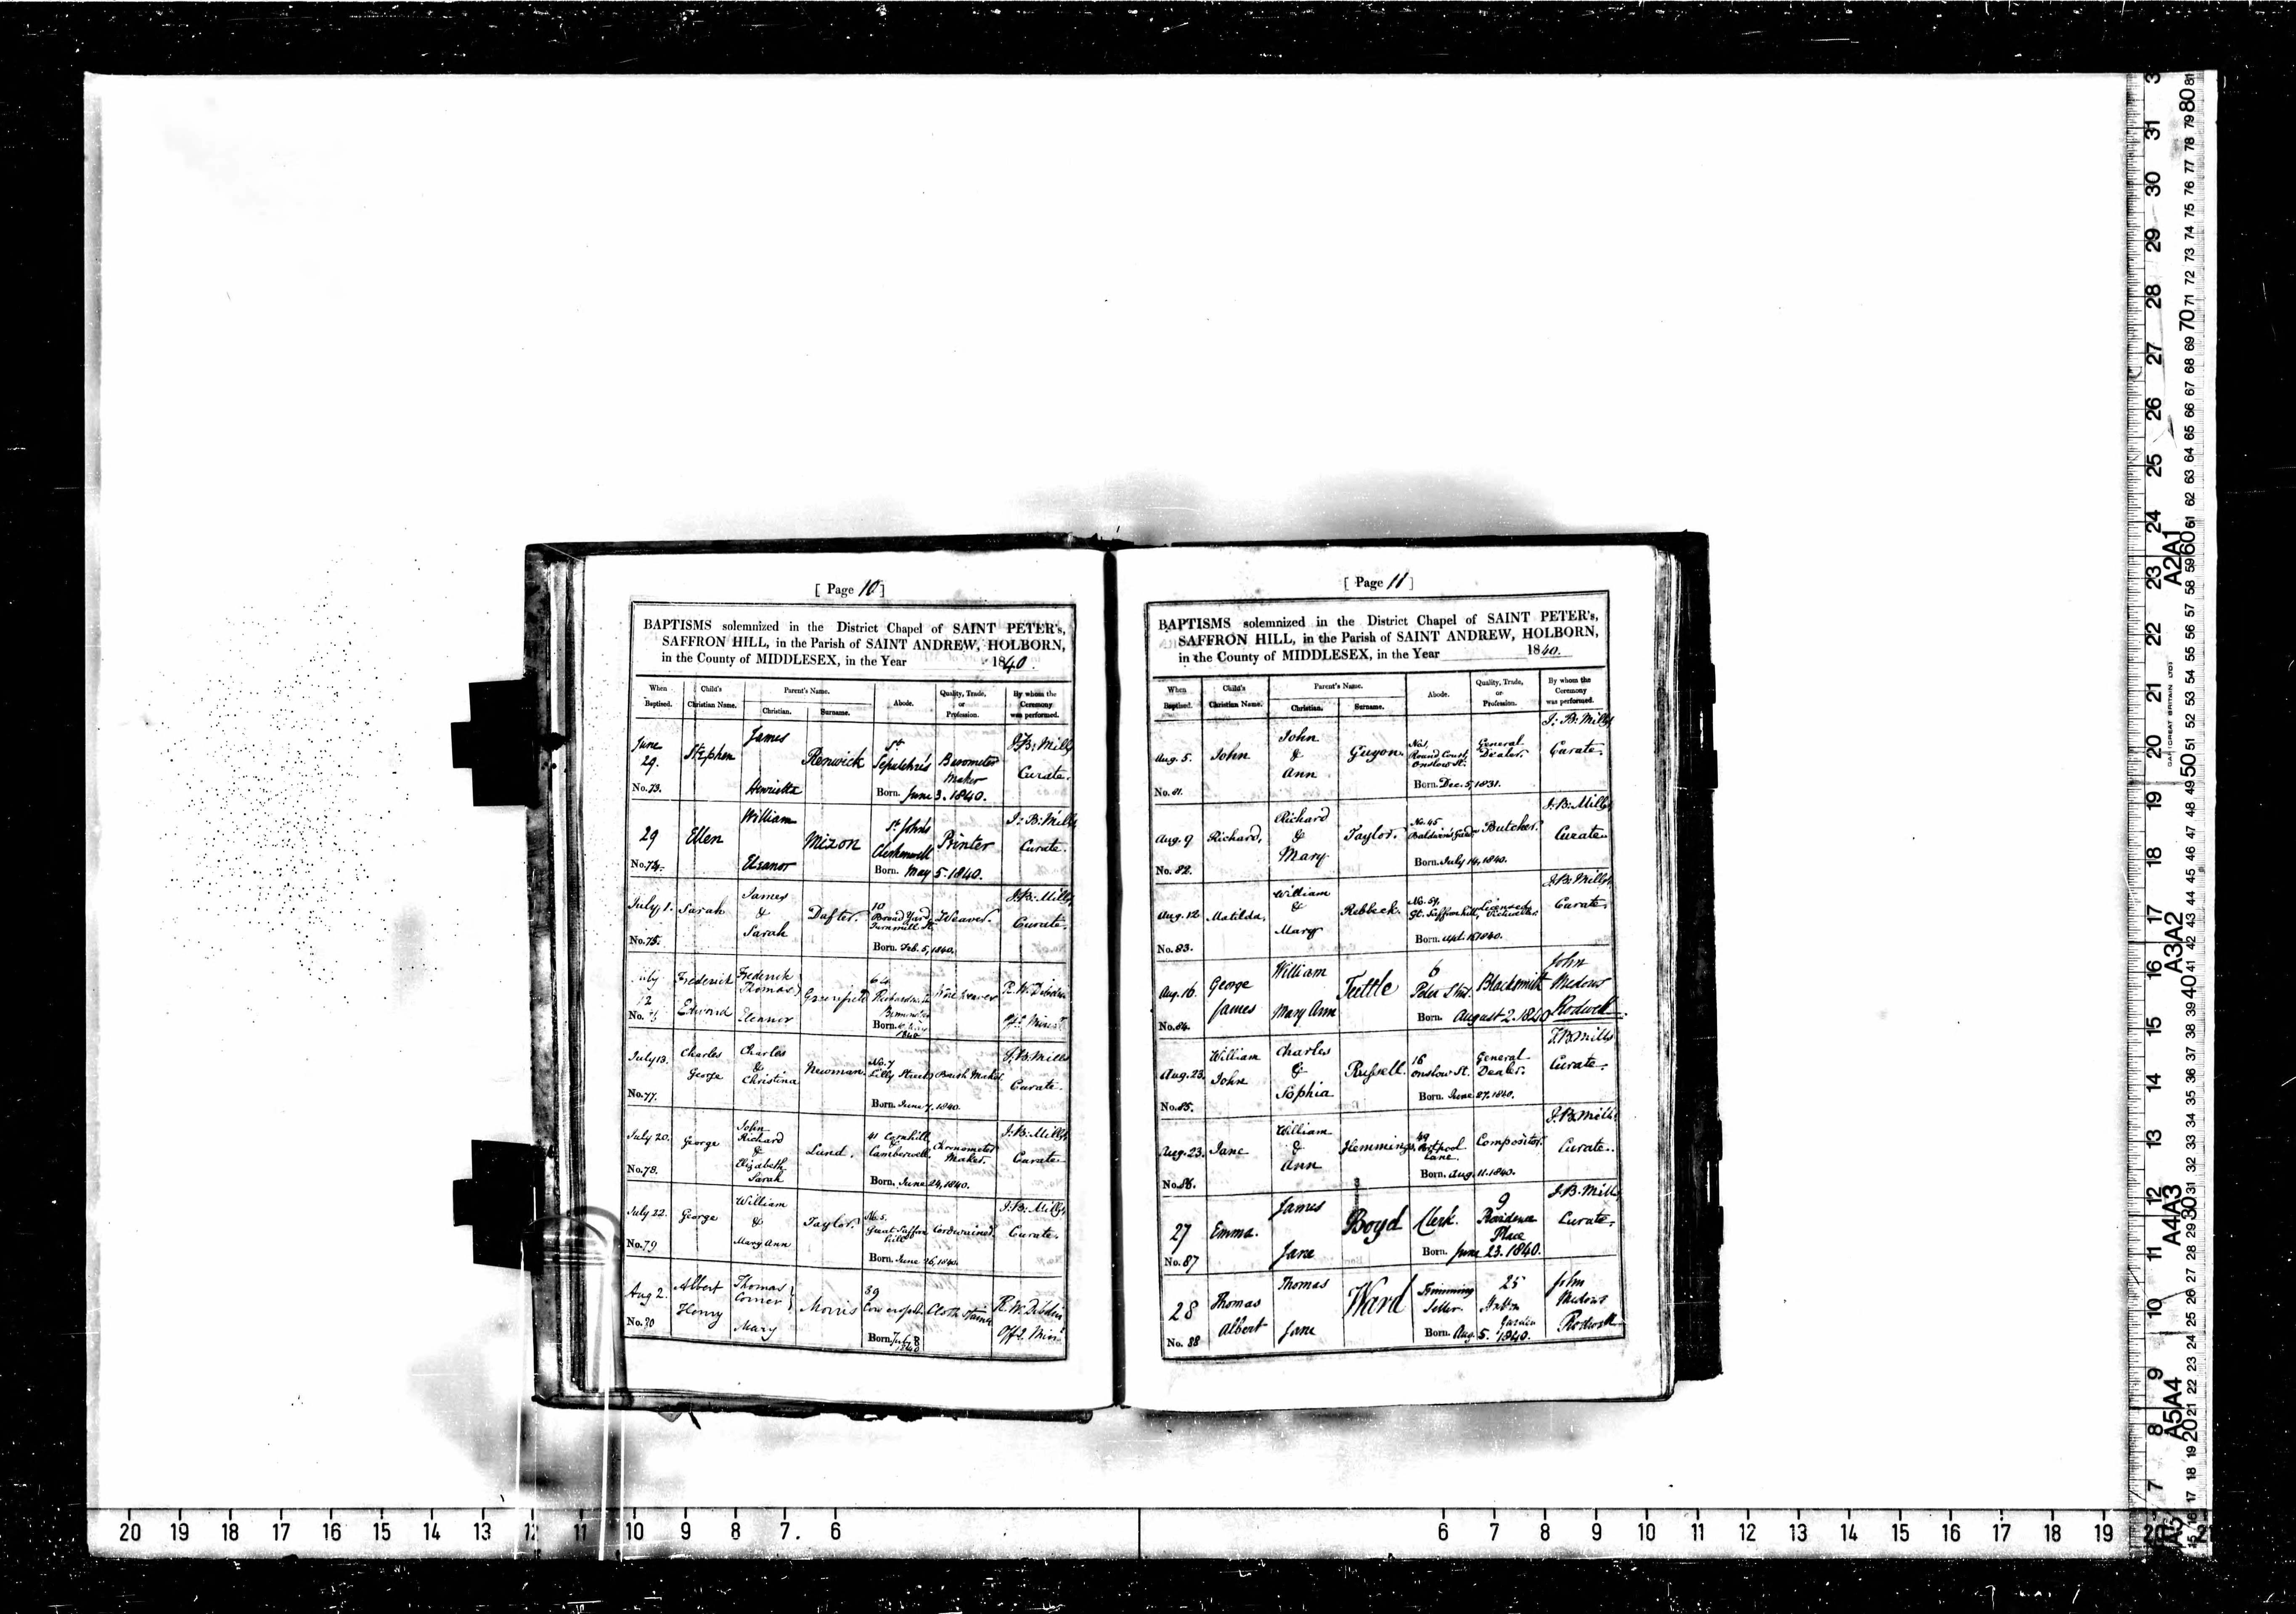 [ Page 10 ]
BAPTISMS solemnized in the District Chapel of SAINT PETER's,
SAFFRON HILL, in the Parish of SAINT ANDREW, HOLBORN,
in the County of MIDDLESEX, in the Year 1840.
When Baptised.
Child's Christian Name.
Parent's Name.
Christian.
Surname.
Abode.
Quality, Trade, or Profession.
By whom the Ceremony was performed.
June 29.
No. 73.
Stephen
James
Henrietta
Renwick
St Sepulchre's
Barometer Maker
Born. June 3. 1840.
J. B: Mills
Curate.
29
No. 74.
Ellen
William
Eleanor
Mizon
St John's
Clerkenwell
Printer
Born. May 5. 1840.
J: B: Mills
Curate.
July 1.
No. 75.
Sarah
James
&
Sarah
Dafter.
10
Broad Yard,
Turnmill St.
Weaver.
Born. Feb. 5, 1840.
J. B: Mills,
Curate.
July
12
No. 76
Frederick
Edward
Frederick
Thomas
Eleanor
Greenfield
64
Born.
1840
R. W. Dibdin
Off. Minr.
July 13.
No. 77.
Charles
George
Charles
&
Christina
Newman.
No. 7
Lilly Street
Brush Maker.
Born. June 7, 1840.
J. B. Mills
Curate.
July 20.
No. 78.
George
John
Richard
&
Elizabeth
Sarah
Lund.
41 Cornhill,
&
Camberwell.
Chronometer
Maker.
Born. June 24, 1840.
J: B: Mills,
Curate.
July 22.
No. 79
George
William
&
Mary Ann
Taylor.
No. 5,
Great Saffron
Hill
Cordwainer.
Born. June 26, 1840.
J: B: Mills,
Curate.
Aug 2.
No. 80
Albert
Henry
Thomas
Corner
Mary
Morris
39
Cow cross
Cloth
Born July 8
1840
R. W. Dibdin
Off. Minr.
[ Page 11 ]
BAPTISMS solemnized in the District Chapel of SAINT PETER's,
SAFFRON HILL, in the Parish of SAINT ANDREW, HOLBORN,
in the County of MIDDLESEX, in the Year 1840.
When Baptised.
Child's Christian Name.
Parent's Name.
Christian.
Surname.
Abode.
Quality, Trade, or Profession.
By whom the Ceremony was performed.
Aug. 5.
No. 81.
John
John
&
Ann
Guyon.
Round Court,
Onslow St.
General
Dealer.
Born. Dec. 5, 1831.
J: B: Mills
Curate.
Aug. 9
No. 82.
Richard,
Richard
&
Mary
Taylor.
No. 45
Baldwin's Gard.
Butcher.
Born. July 14, 1840.
J. B: Mills
Curate.
Aug. 12
No. 83.
Matilda,
William
&
Mary
Rebbeck.
No. 59,
Gt. Saffron hill,
Licensed
Victualler.
Born. 1840.
J. B. Mills
Curate.
Aug. 16.
No. 84.
George
James
William
Mary Ann
Tuttle
6
Peter Street.
Blacksmith
Born. August 2. 1840
John
Medows
Rodwell
Aug. 23.
No. 85.
William
John
Charles
&
Sophia
Russell.
16
Onslow St.
General
Dealer.
Born. June 27. 1840.
J. B. Mills
Curate.
Aug. 23.
No. 86.
Jane
William
&
Ann
Hemmings.
49
Portpool
Lane.
Compositor.
Born. Aug. 11. 1840.
J. B. Mills
Curate.
27
No. 87
Emma.
James
Jane
Boyd
Clerk.
9
Providence
Place
Born. June 23. 1840.
J. B. Mills
Curate.
28
No. 88
Thomas
Albert
Thomas
Jane
Ward
Trimming
Seller.
25
Hatton
Garden
Born. Aug. 5. 1840.
John
Medows
Rodwell